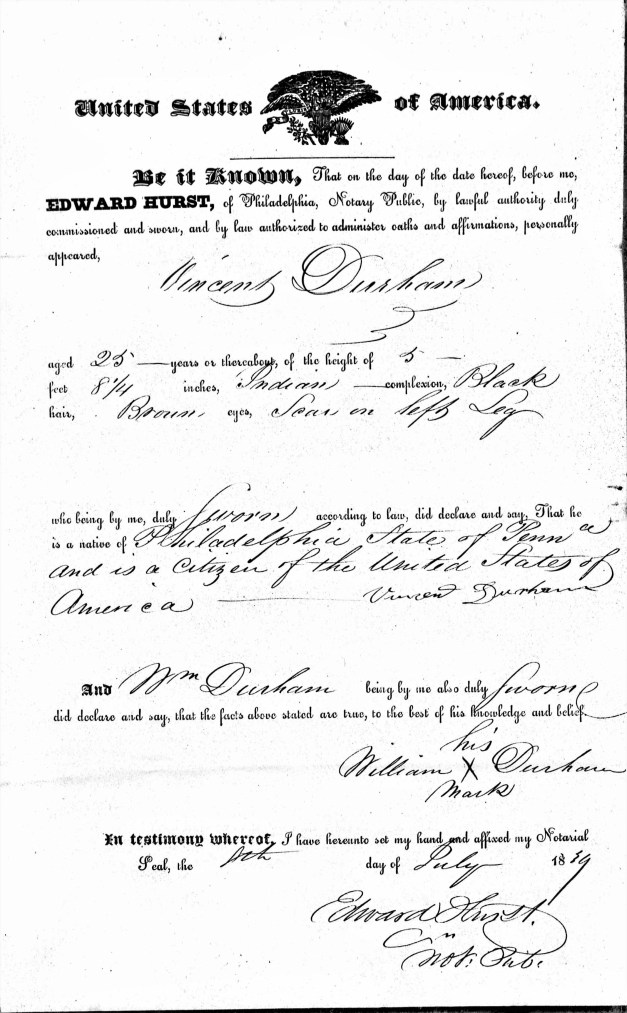 United States of America.
Be it Known, That on the day of the date hereof, before me,
EDWARD HURST, of Philadelphia, Notary Public, by lawful authority duly
commissioned and sworn, and by law authorized to administer oaths and affirmations, personally
appeared,
Vincent Durham
aged 25 years or thereabout, of the height of 5
feet 8 1/4 inches, Indian complexion, Black
hair, Brown eyes, Scar on left Leg
who being by me, duly Sworn according to law, did declare and say, That he
is a native of Philadelphia State of Penna
and is a Citizen of the United States of
America
Vincent Durham
And Wm Durham being by me also duly Sworn
did declare and say, that the facts above stated are true, to the best of his knowledge and belief
his
William X Durham
Mark
In testimony whereof, I have hereunto set my hand and affixed my Notarial
Seal, the day of July 18
Edward Hurst.
Not: Pub: